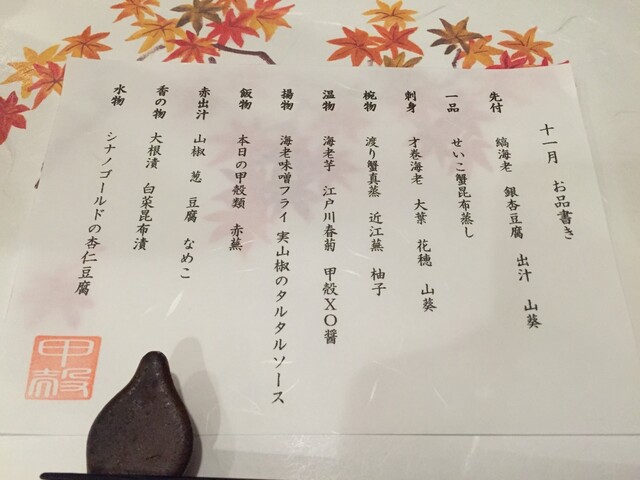 十一月　お品書き
先付　縞海老　銀杏豆腐　出汁　山葵
一品　せいこ蟹昆布蒸し
刺身　才巻海老　大葉　花穂　山葵
椀物　渡り蟹真蒸　近江蕪　柚子
温物　海老芋　江戸川春菊　甲殻XO醬
揚物　海老味噌フライ　実山椒のタルタルソース
飯物　本日の甲殻類　赤蕪
赤出汁　山椒　葱　豆腐　なめこ
香の物　大根漬　白菜昆布漬
水物　シナノゴールドの杏仁豆腐
甲殻